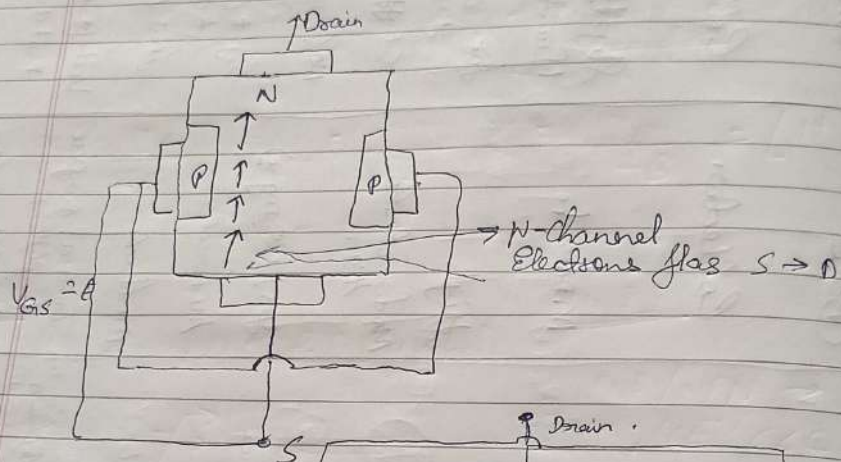 Drain
N
P
P
N-channel
Electrons flas S → D
V_GS =
S
Drain .